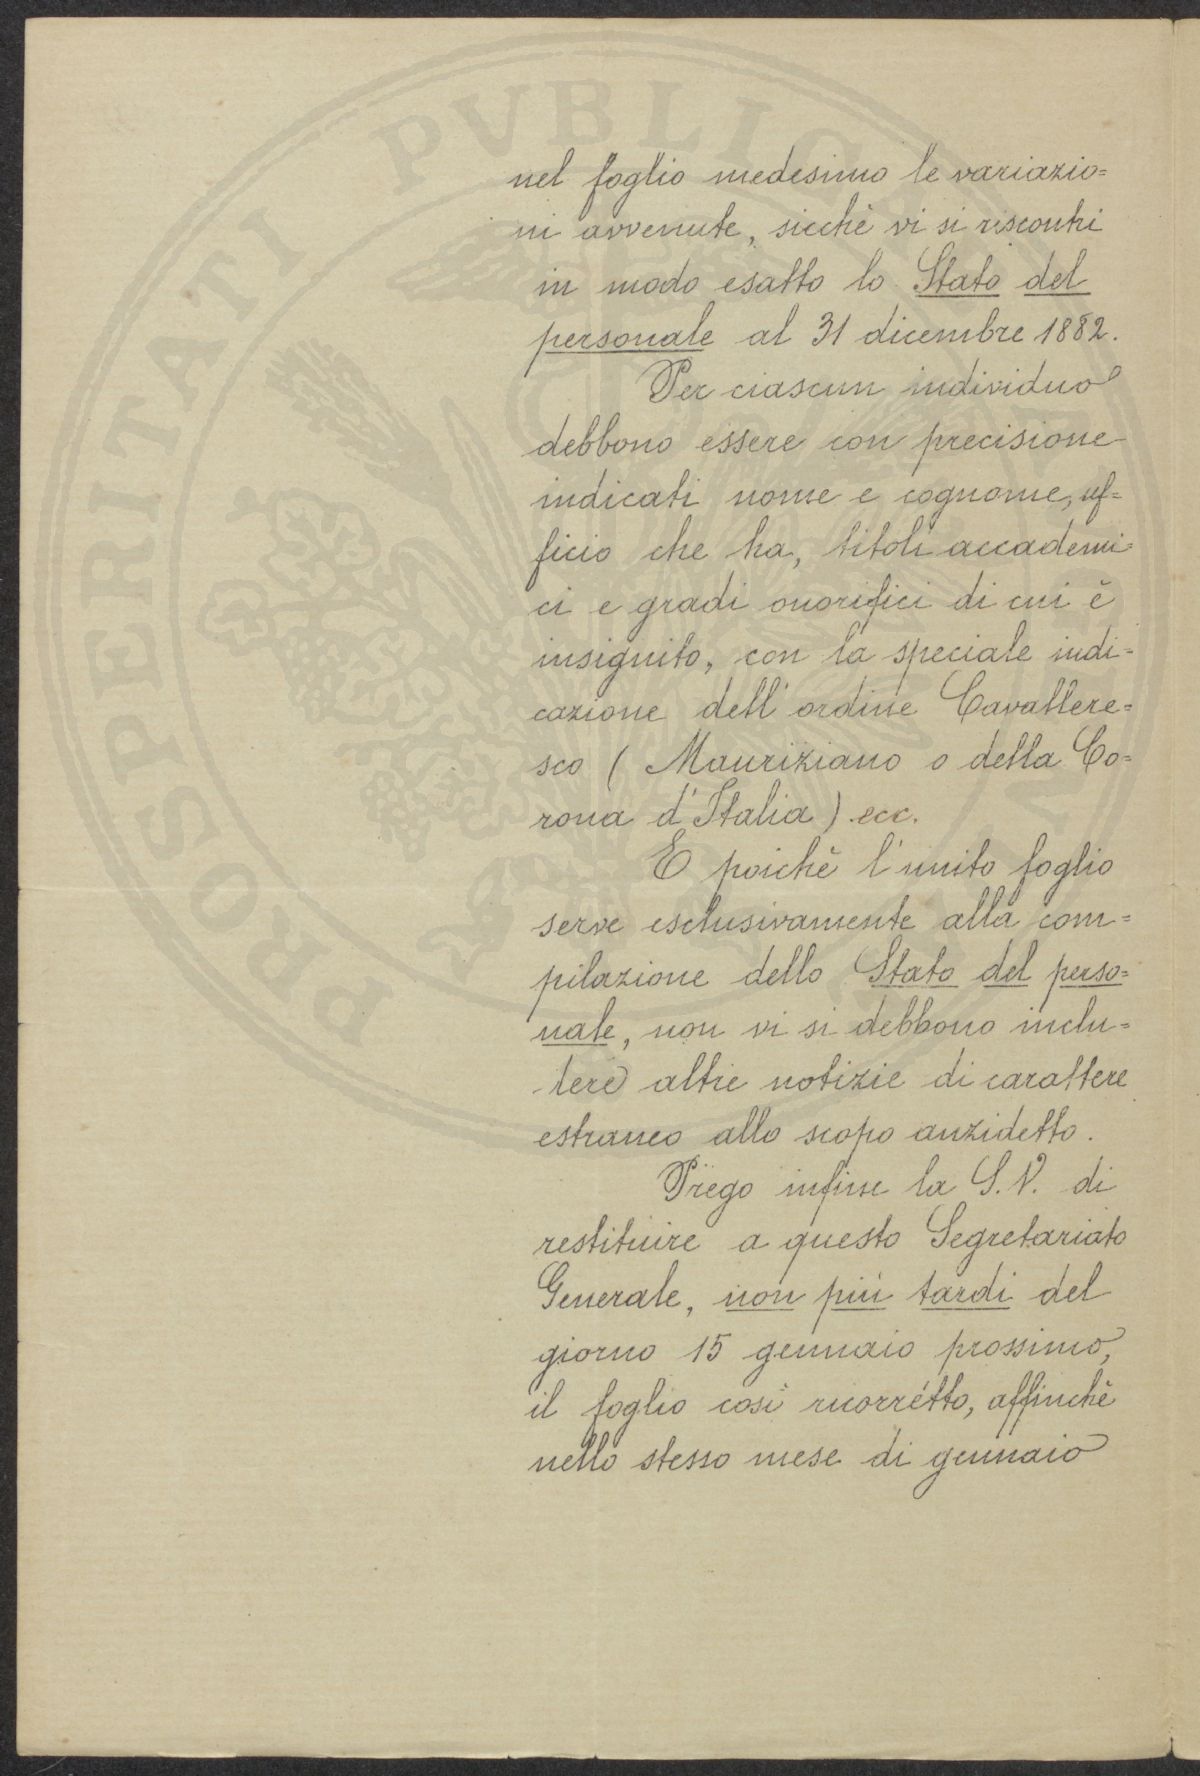 nel foglio medesimo le variazio=
ni avvenute, sicchè vi si riscontri
in modo esatto lo Stato del
personale al 31 dicembre 1882.
Per ciascun individuo
debbono essere con precisione
indicati nome e cognome, uf=
ficio che ha, titoli accademi=
ci e gradi onorifici di cui è
insignito, con la speciale indi=
cazione dell'ordine Cavallere=
sco (Mauriziano o della Co=
rona d'Italia) ecc.
E poichè l'unito foglio
serve esclusivamente alla com=
pilazione dello Stato del perso=
nale, non vi si debbono inclu=
dere altre notizie di carattere
estraneo allo scopo anzidetto.
Prego infine la S.V. di
restituire a questo Segretariato
Generale, non più tardi del
giorno 15 gennaio prossimo,
il foglio così ricorretto, affinchè
nello stesso mese di gennaio
PROSPERITATI PVBLIC